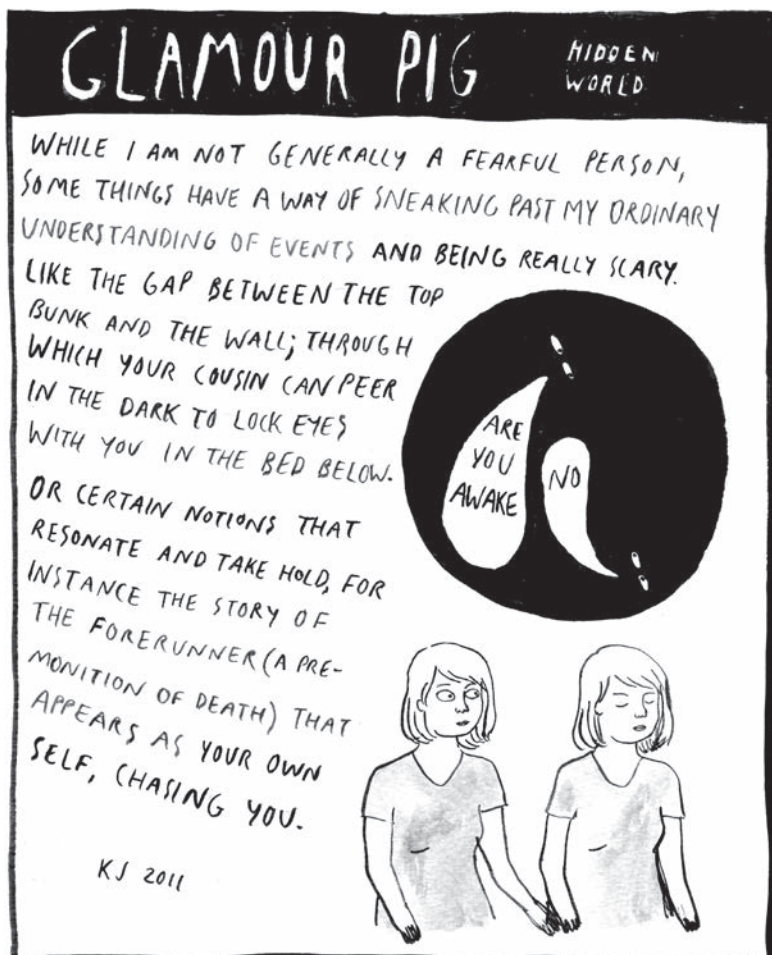 GLAMOUR PIG
HIDDEN
WORLD
WHILE I AM NOT GENERALLY A FEARFUL PERSON,
SOME THINGS HAVE A WAY OF SNEAKING PAST MY ORDINARY
UNDERSTANDING OF EVENTS AND BEING REALLY SCARY.
LIKE THE GAP BETWEEN THE TOP
BUNK AND THE WALL; THROUGH
WHICH YOUR COUSIN CAN PEER
IN THE DARK TO LOCK EYES
WITH YOU IN THE BED BELOW.
ARE
YOU
AWAKE
NO
OR CERTAIN NOTIONS THAT
RESONATE AND TAKE HOLD, FOR
INSTANCE THE STORY OF
THE FORERUNNER (A PRE-
MONITION OF DEATH) THAT
APPEARS AS YOUR OWN
SELF, CHASING YOU.
KJ 2011